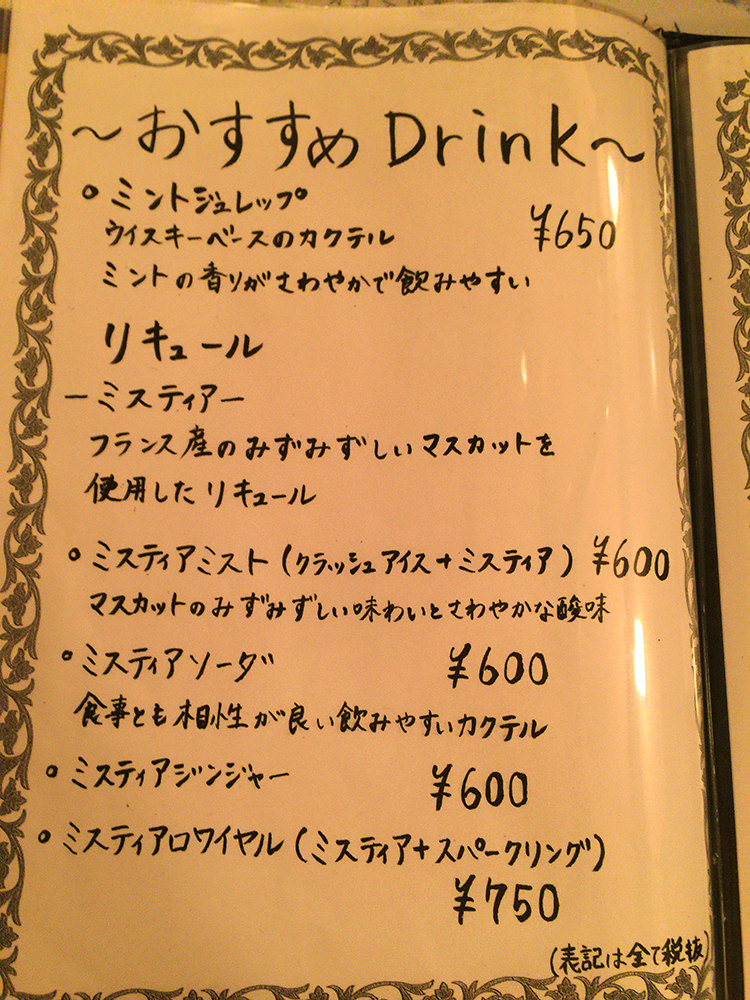 ～おすすめDrink～
○ミントジュレップ
ウイスキーベースのカクテル ¥650
ミントの香りがさわやかで飲みやすい
リキュール
ーミスティアー
フランス産のみずみずしいマスカットを
使用したリキュール
○ミスティアミスト(クラッシュアイス+ミスティア) ¥600
マスカットのみずみずしい味わいとさわやかな酸味
○ミスティアソーダ ¥600
食事とも相性が良い飲みやすいカクテル
○ミスティアジンジャー ¥600
○ミスティアロワイヤル(ミスティア+スパークリング)
¥750
(表記は全て税抜)